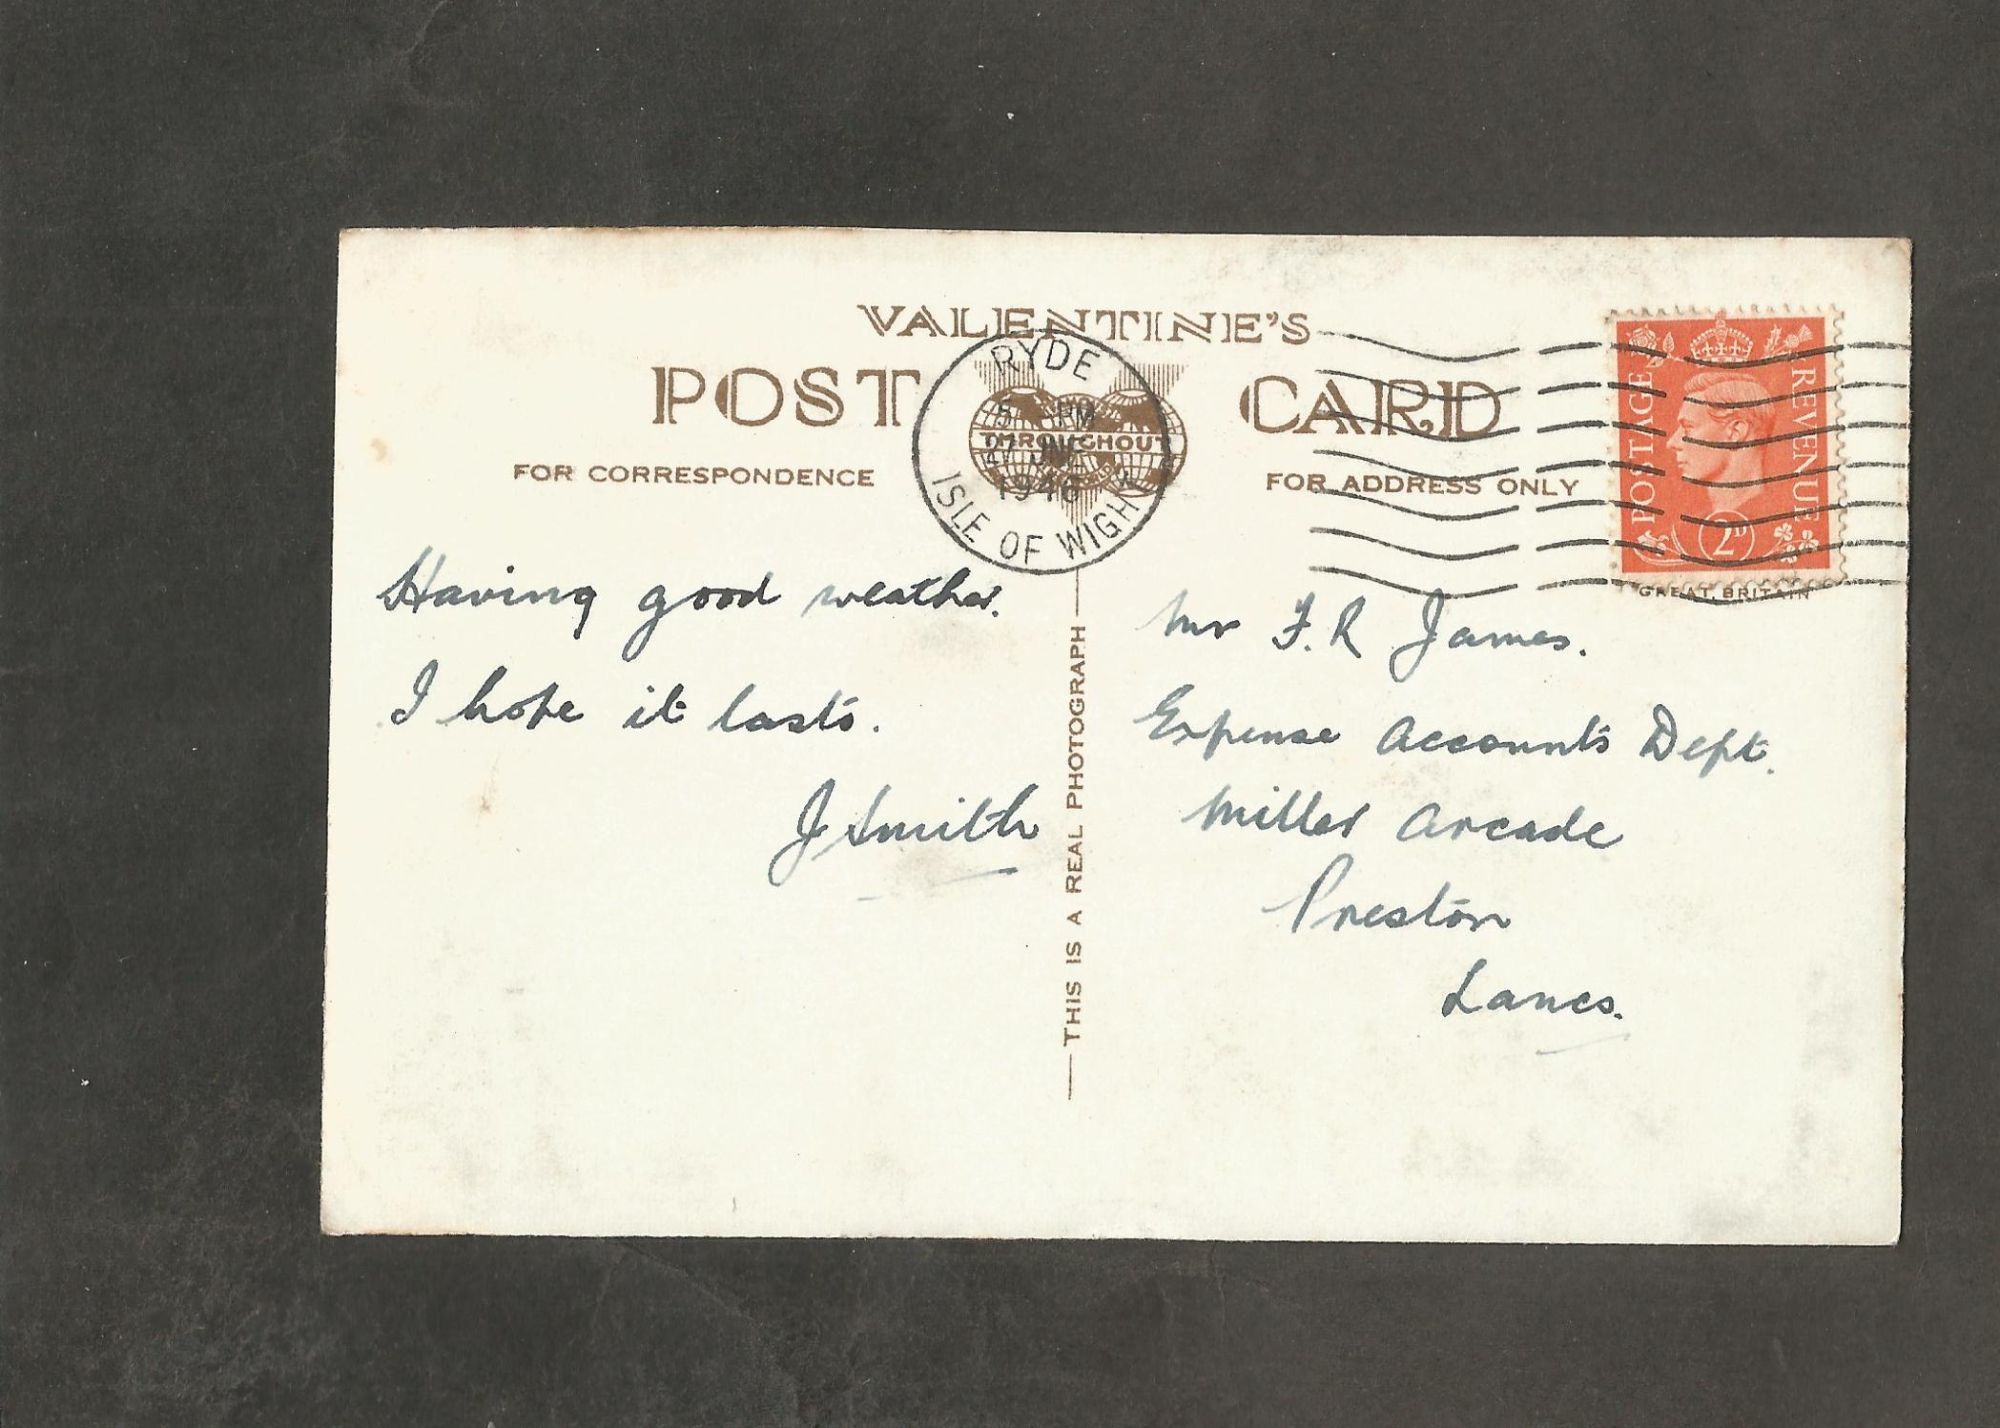 VALENTINE'S
POST CARD
FOR CORRESPONDENCE
FOR ADDRESS ONLY
THROUGHOUT
WORLD
RYDE
5 PM
27 JNE
1946
ISLE OF WIGHT
POSTAGE
REVENUE
2D
GREAT BRITAIN
Having good weather.
I hope it lasts.
J Smith
THIS IS A REAL PHOTOGRAPH
Mr F.R James.
Expense Accounts Dept.
Miller Arcade
Preston
Lancs.